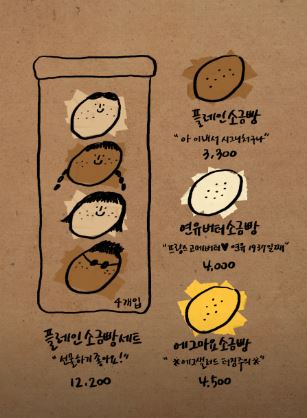 4개입
플레인 소금빵 세트
"선물하기 좋아요!"
12,200
플레인 소금빵
"아 이 내서 시그니처구나"
3,300
연유버터 소금빵
"프랑스 고메버터♥연유
4,000
에그마요 소금빵
"※에그샐러드 터짐주의※"
4,500